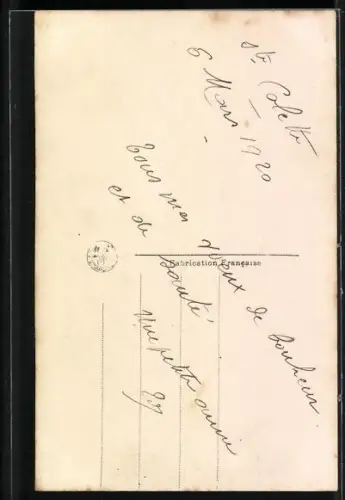 Ste Colette
6 Mars 1920
Tous mes voeux de bonheur
et de santé
Une petite amie
Fabrication Française